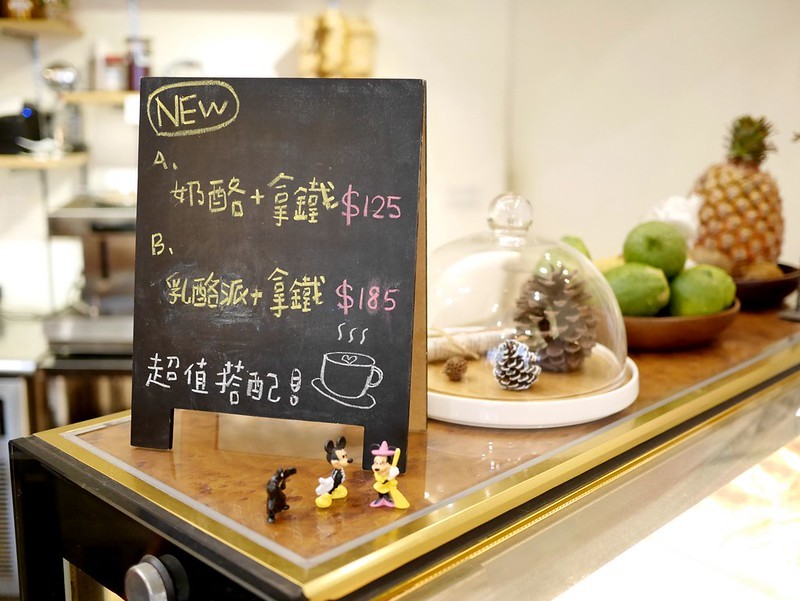 NEW
A、
奶酪+拿鐵$125
B、
乳酪派+拿鐵 $185
超值搭配!